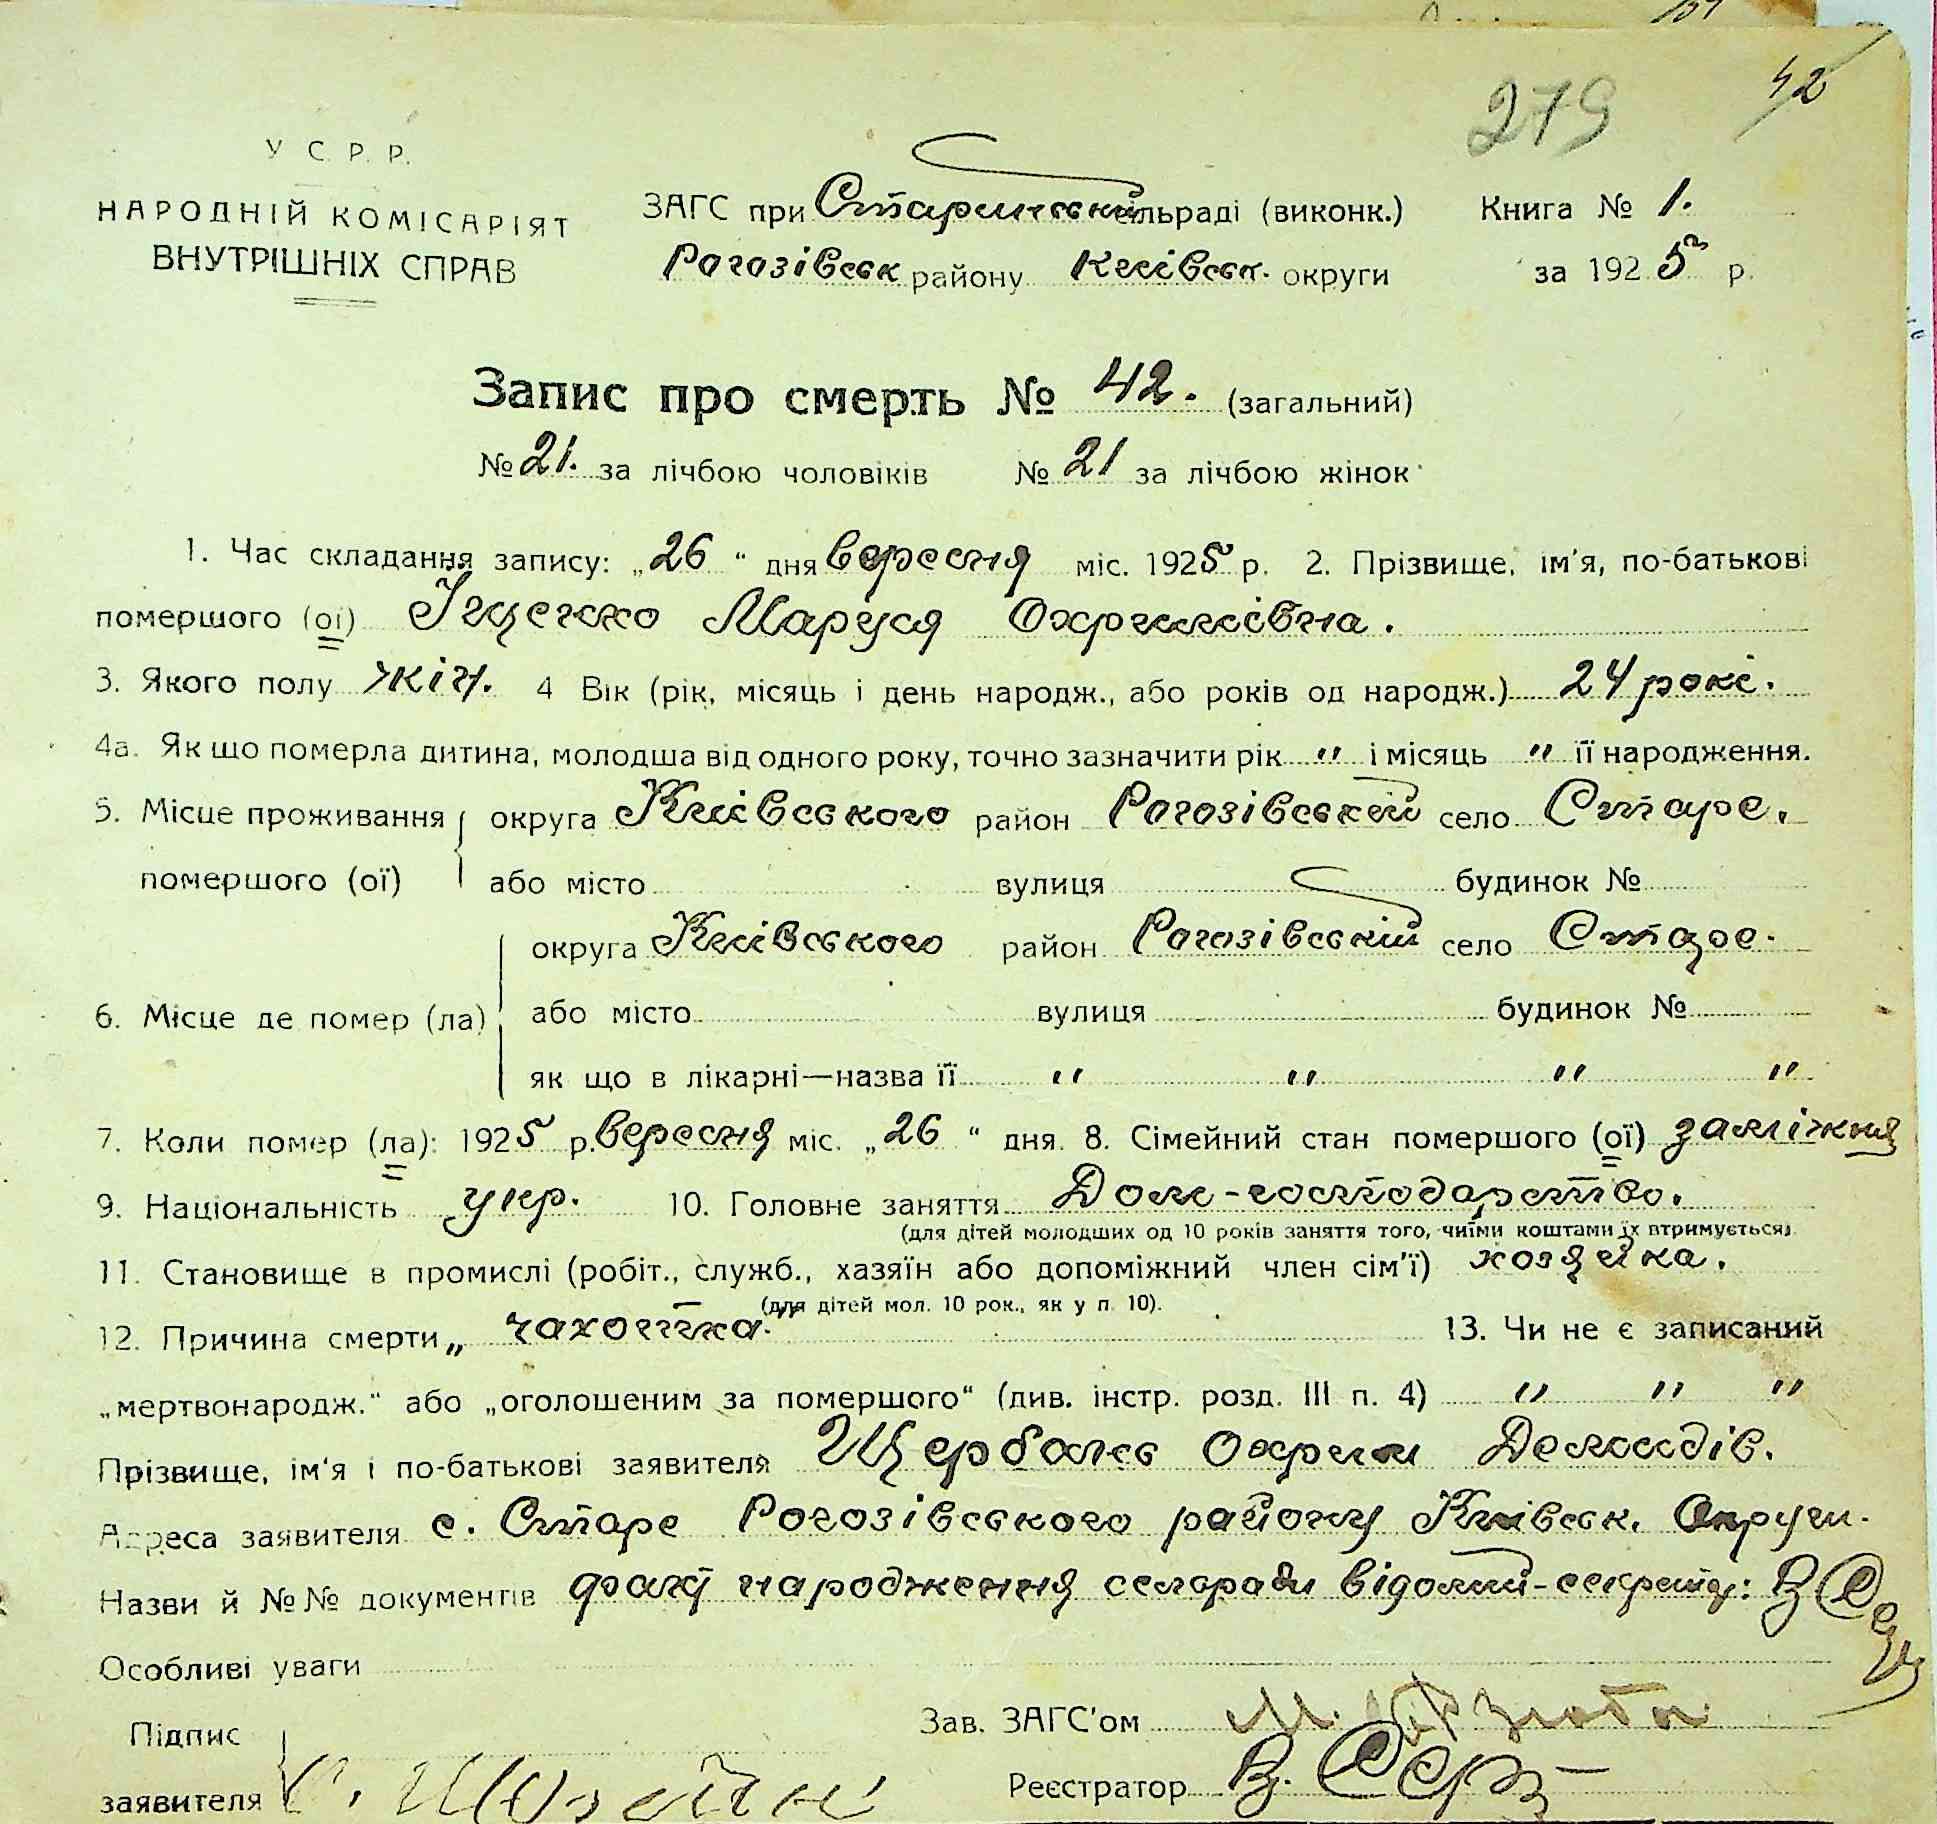 279
42
У С. Р. Р.
НАРОДНІЙ КОМІСАРІЯТ
ВНУТРІШНІХ СПРАВ
ЗАГС при Старинській сільраді (виконк.) Книга № 1.
Рогозівськ району Київськ. округи за 1925 р.
Запис про смерть № 42. (загальний)
№ 21. за лічбою чоловіків № 21 за лічбою жінок
1. Час складання запису: „26“ дня вересня міс. 1925 р. 2. Прізвище, ім'я, по-батькові
помершого (ої) Іщенко Маруся Охримівна.
3. Якого полу жін. 4 Вік (рік, місяць і день народж., або років од народж.) 24 рокі.
4а. Як що померла дитина, молодша від одного року, точно зазначити рік " і місяць " її народження.
5. Місце проживання округа Київського район Рогозівський село Старе.
помершого (ої) або місто вулиця будинок №
округа Київського район Рогозівський село Старе.
6. Місце де помер (ла) або місто вулиця будинок №
як що в лікарні—назва її " " " "
7. Коли помер (ла): 1925 р. вересня міс. „26“ дня. 8. Сімейний стан помершого (ої) заміжня
9. Національність укр. 10. Головне заняття Дом-господарство.
(для дітей молодших од 10 років заняття того, чиїми коштами їх втримується)
11. Становище в промислі (робіт., служб., хазяїн або допоміжний член сім'ї) хозяйка.
(для дітей мол. 10 рок., як у п. 10).
12. Причина смерти „чахотка." 13. Чи не є записаний
„мертвонародж.“ або „оголошеним за помершого“ (див. інстр. розд. III п. 4) " " "
Прізвище, ім'я і по-батькові заявителя Щербань Охрим Демидів.
Адреса заявителя с. Старе Рогозівського району Київськ. Округи.
Назви й №№ документів факт народження сельради відомий-секретар:
Особливі уваги
Підпис Зав. ЗАГС'ом М.
заявителя Реєстратор В.